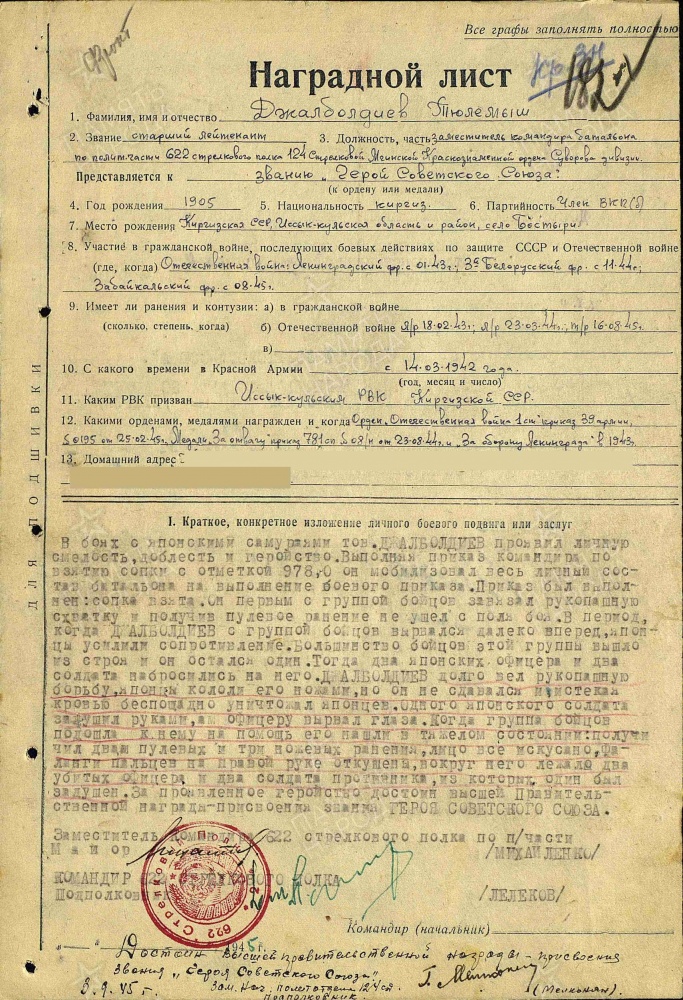 Все графы заполнять полностью
Фронт
Наградной лист
1. Фамилия, имя и отчество Джалболдиев Тюлемыш
2. Звание старший лейтенант 3. Должность, часть заместитель командира батальона
по политчасти 622 стрелкового полка 124 Стрелковой Мгинской Краснознаменной ордена Суворова дивизии.
Представляется к званию „Герой Советского Союза"
(к ордену или медали)
4. Год рождения 1905 5. Национальность киргиз. 6. Партийность Член ВКП(б)
7. Место рождения Киргизская ССР, Иссык-кульская область и район, село Бостыри
8. Участие в гражданской войне, последующих боевых действиях по защите СССР и Отечественной войне
(где, когда) Отечественная война: Ленинградский фр. с 01.43г; 3й Белорусский фр. с 11.44г;
Забайкальский фр. с 08.45г.
9. Имеет ли ранения и контузии: а) в гражданской войне
(сколько, степень, когда) б) Отечественной войне л/р 18.02.43г; л/р 23.03.44г; т/р 16.08.45г.
в)
10. С какого времени в Красной Армии с 14.03.1942 года.
(год, месяц и число)
11. Каким РВК призван Иссык-кульским РВК Киргизской ССР.
12. Какими орденами, медалями награжден и когда Орден „Отечественная война 1 ст" приказ 39 армии,
№ 0195 от 25.02.45г. Медали „За отвагу" приказ 781 сп № 08/н от 23.08.44г. и „За оборону Ленинграда" в 1943г.
13. Домашний адрес
ДЛЯ ПОДШИВКИ
I. Краткое, конкретное изложение личного боевого подвига или заслуг
В боях с японскими самураями тов. ДЖАЛБОЛДИЕВ проявил личную
смелость, доблесть и геройство. Выполняя приказ командира по
взятию сопки с отметкой 978,0 он мобилизовал весь личный сос-
тав батальона на выполнение боевого приказа. Приказ был выпол-
нен: сопка взята. Он первым с группой бойцов завязал рукопашную
схватку и получив пулевое ранение не ушел с поля боя. В период,
когда ДЖАЛБОЛДИЕВ с группой бойцов вырвался далеко вперед, япон-
цы усилили сопротивление. Большинство бойцов этой группы вышло
из строя и он остался один. Тогда два японских офицера и два
солдата набросились на него. ДЖАЛБОЛДИЕВ долго вел рукопашную
борьбу, японцы кололи его ножами, но он не сдавался и истекая
кровью беспощадно уничтожал японцев. Одного японского солдата
задушил руками, ам офицеру вырвал глаза. Когда группа бойцов
подошла к нему на помощь его нашли в тяжелом состоянии: получи
чил двам пулевых и три ножевых ранения, лицо все искусано, фа-
ланги пальцев на правой руке откушены, вокруг него лежало два
убитых офицера и два солдата противника, из которых один был
задушен. За проявленное геройство достоин высшей Правитель-
ственной награды-присвоения звания ГЕРОЯ СОВЕТСКОГО СОЮЗА.
Заместитель командира 622 стрелкового полка по п/части
Майор /МИХАЙЛЕНКО/
КОМАНДИР 622 СТРЕЛКОВОГО ПОЛКА
Подполковник /ЛЕЛЕКОВ/
Командир (начальник)
„ — " 1945 г.
Достоин высшей правительственной награды - присвоения
звания „Героя Советского Союза".
3.9.45г. Зам. Нач. политотдела 124 сд
подполковник (Мелконян).